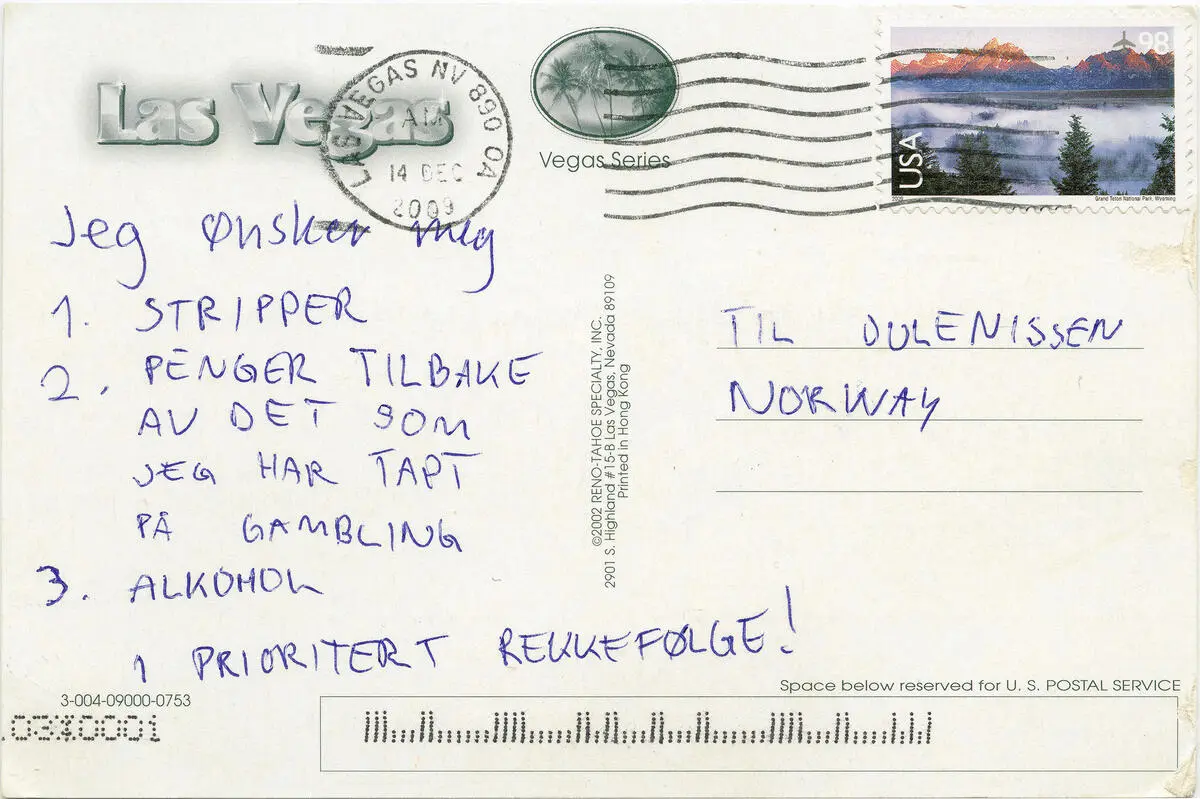 Las Vegas
LAS VEGAS NV 890 OA
AM
14 DEC
2009
Vegas Series
98
USA
2006
Grand Teton National Park, Wyoming
Jeg Ønsker meg
1. STRIPPER
2. PENGER TILBAKE
AV DET SOM
JEG HAR TAPT
PÅ GAMBLING
3. ALKOHOL
I PRIORITERT REKKEFØLGE!
©2002 RENO-TAHOE SPECIALTY, INC.
2901 S. Highland #15-B Las Vegas, Nevada 89109
Printed in Hong Kong
TIL JULENISSEN
NORWAY
Space below reserved for U. S. POSTAL SERVICE
3-004-09000-0753